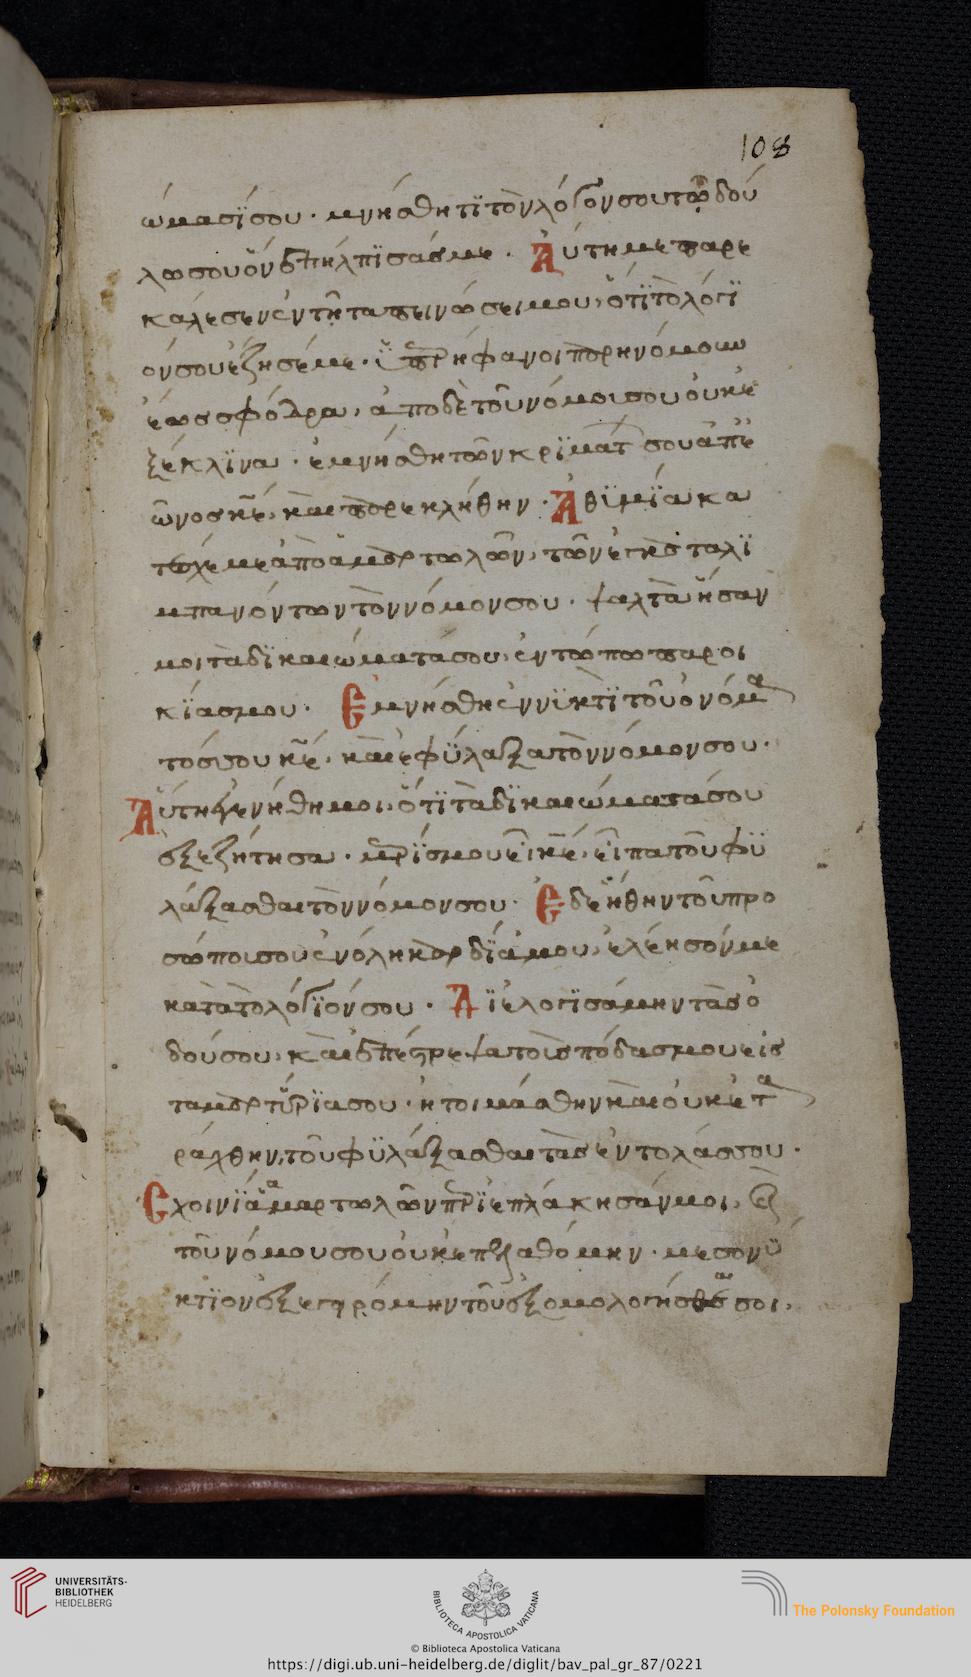 108
ώμασϊσου· μνήσθητϊτὸνλόγονσουτῶδού
λωσουὅνἐπήλπϊσάσμε· Αὕτημεπαρε
κάλεσενἐντῆταπεινώσειμου, ὅτϊτὸλόγϊ
όνσουἔζησέμε· ὑπερήφανοιπαρηνόμουν
ἕωσσφόδρα, ἀποδὲτοῦνόμουσουοὐκἐ
ξέκλϊνα· ἐμνήσθητῶνκρϊμάτ σουἀπ᾽ἐ
ῶνοσκε, καὶπαρεκλήθην· Ἀθϊμϊακα
τέσχεμεἀπὸἁμαρτωλῶν, τῶνἐγκαταλϊ
μπανόντωντὸννόμονσου· ψαλτὰἦσαν
μοιτὰδϊκαιώματάσου, ἐντόπωπαροι
κϊασμου· Ἐμνήσθηἐννϊκτὶτοῦὀνόμα
τόσσουκε, καὶἐφϋλαξατὸννόμονσου·
Αὕτηἐγενήθημοι, ὅτϊτὰδϊκαιώματάσου
ἐξεζήτησα· μερϊσμουεἶκε, εἶπατοῦφϋ
λάξασθαιτὸννόμονσου· Ἐδεήθηντοῦπρο
σώποισουἐνόληκαρδϊαμου, ἐλέησόνμε
κατὰτὸλόγϊόνσου· Δϊελογϊσάμηντὰσὁ
δούσου, καὶἐπέστρεψατοὺσπόδασμουεἰσ
ταμαρτύρϊασου· ἡτοιμάσθηνκαὶοὐκἐτα
ράχθην, τοῦφϋλάξασθαιτὰσἐντολάσσου·
Σχοινϊαἁμαρτωλῶνπερϊεπλάκησάνμοι, καὶ
τοῦνόμουσουοὐκἐπελαθόμην· μεσονϋ
κτϊονἐξεγειρόμηντοῦἐξομολογήσασθαισοι,
UNIVERSITÄTS-
BIBLIOTHEK
HEIDELBERG
BIBLIOTECA APOSTOLICA VATICANA
The Polonsky Foundation
© Biblioteca Apostolica Vaticana
https://digi.ub.uni-heidelberg.de/diglit/bav_pal_gr_87/0221